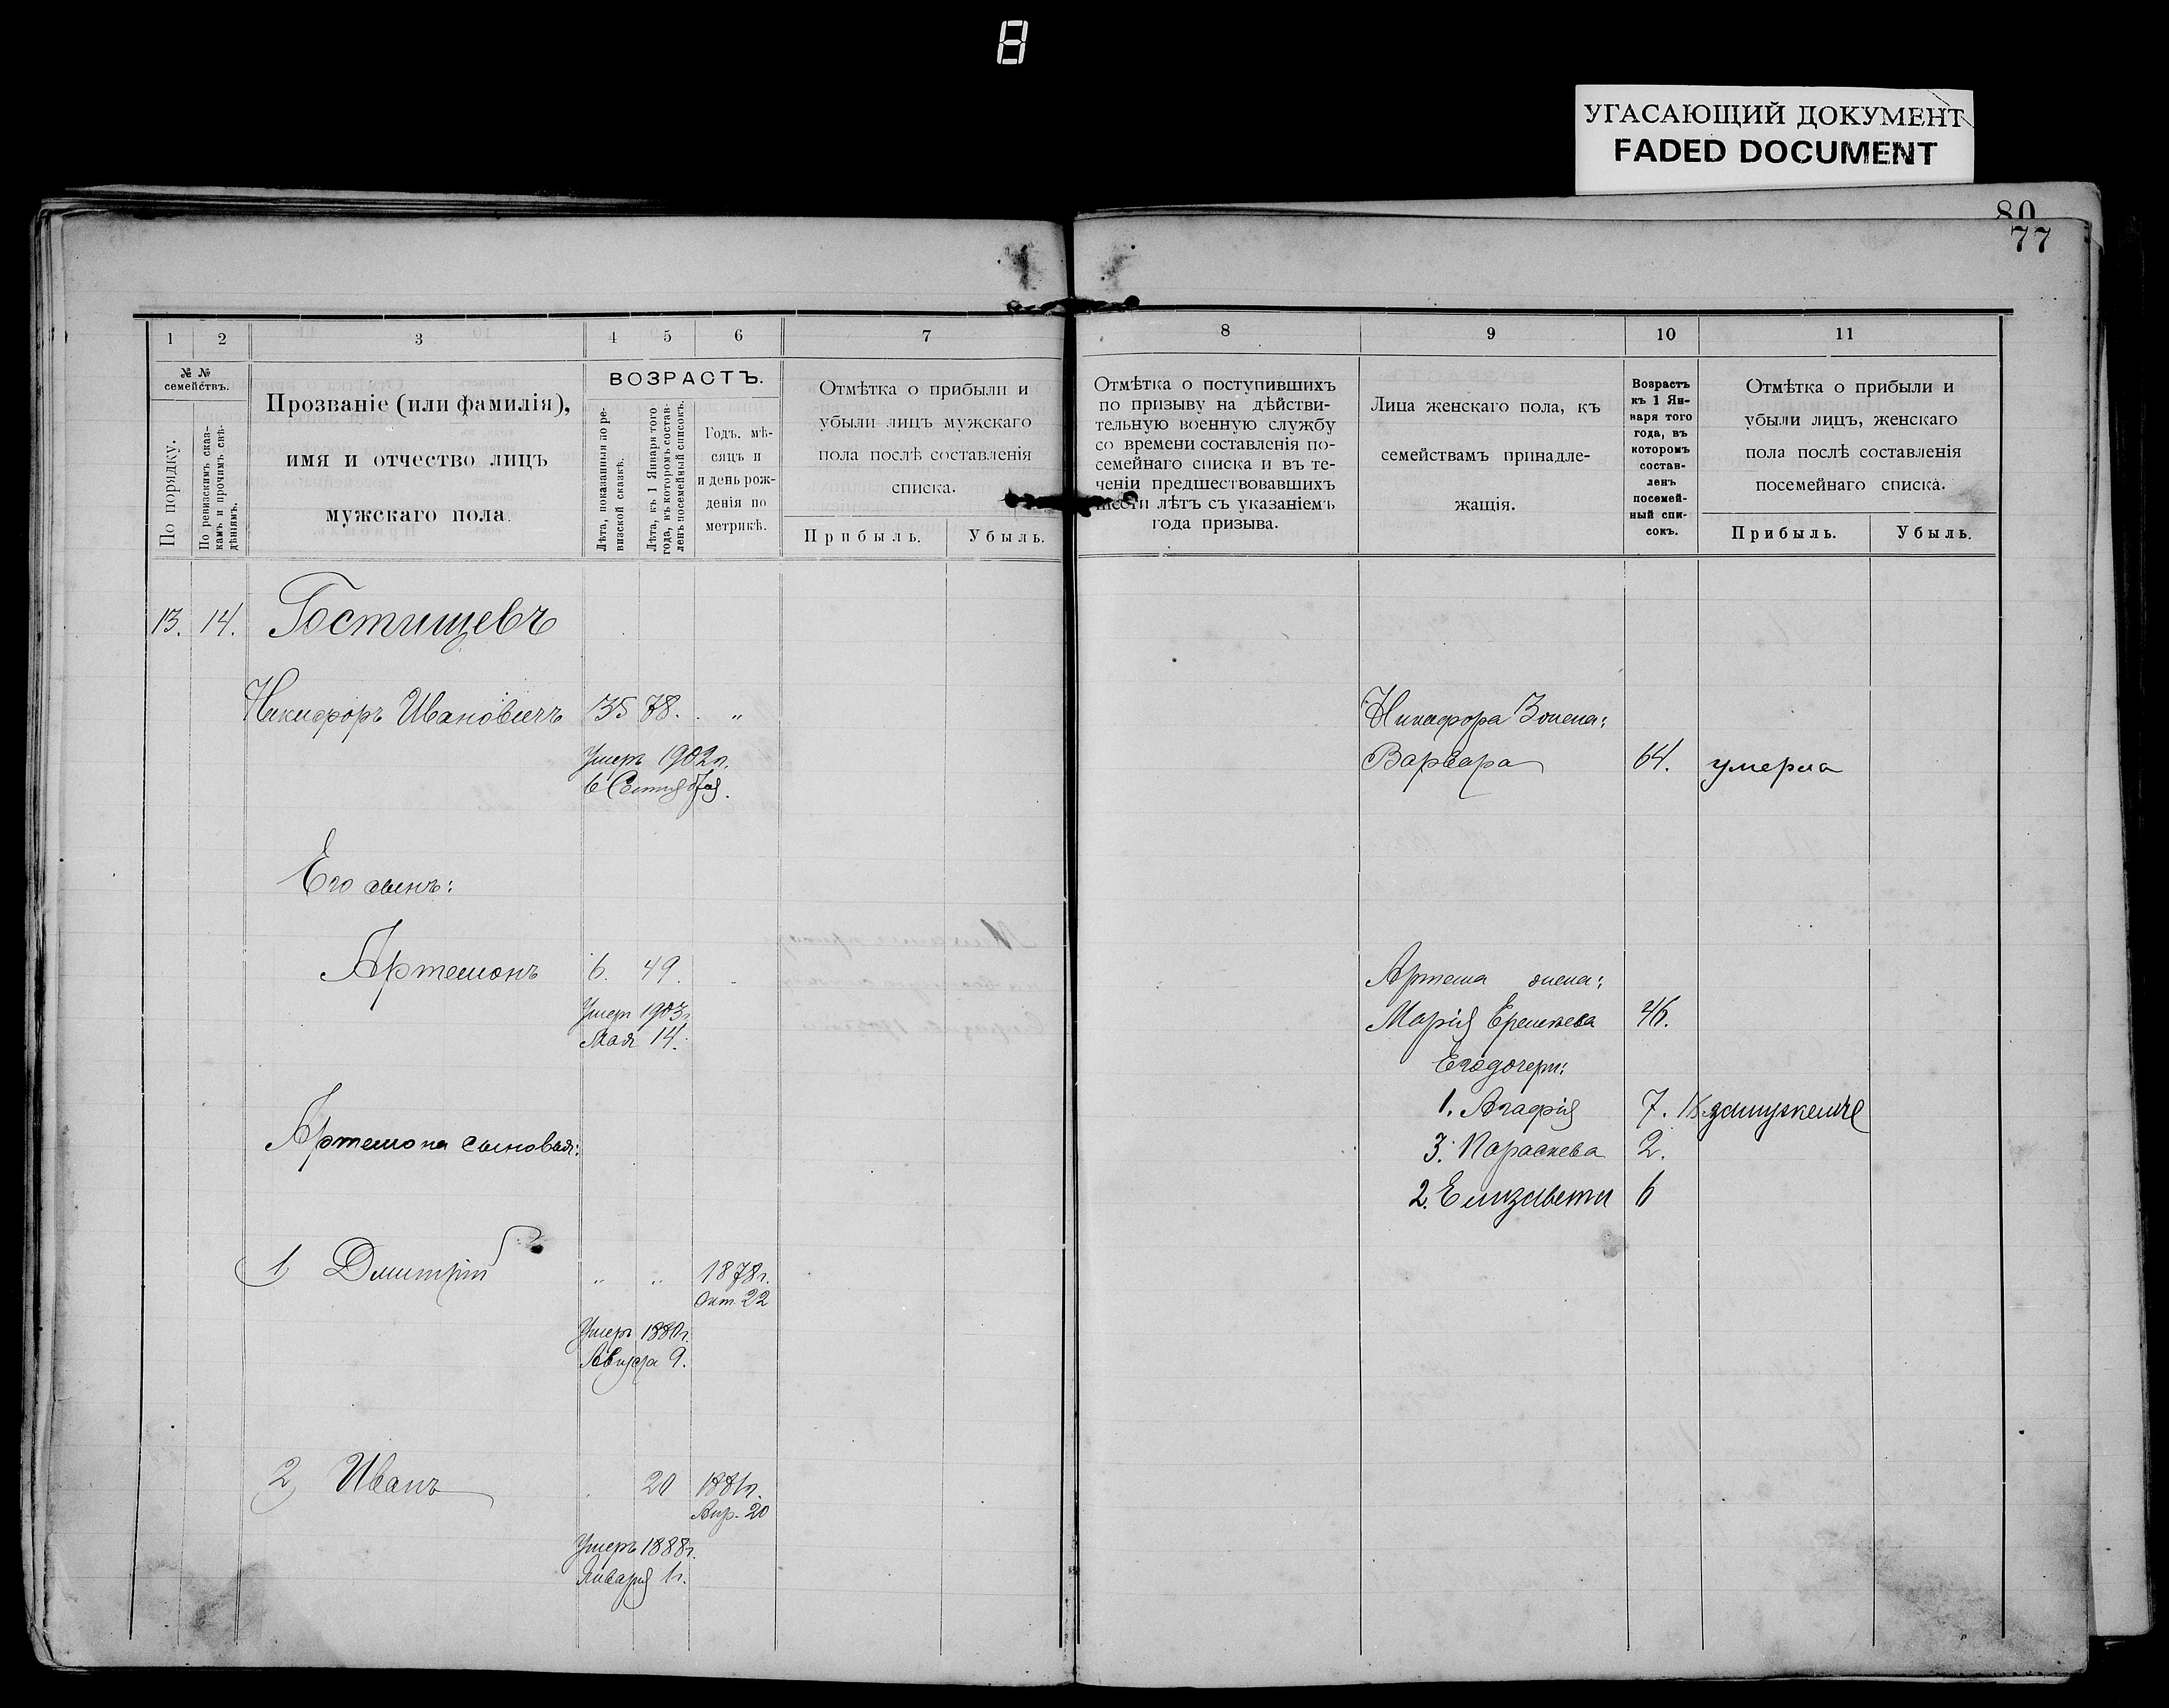 8
УГАСАЮЩИЙ ДОКУМЕНТ
FADED DOCUMENT
80
77
1 2 3 4 5 6 7
№ № семействъ.
По порядку.
По ревизскимъ сказ-
камъ и прочимъ свѣ-
дѣніямъ.
Прозваніе (или фамилія),
имя и отчество лицъ
мужскаго пола.
ВОЗРАСТЪ.
Лѣта, показанныя по ре-
визской сказкѣ.
Лѣта, къ 1 Января того
года, въ которомъ состав-
ленъ посемейный списокъ.
Годъ, мѣ-
сяцъ и
и день рож-
денія по
метрикѣ.
Отмѣтка о прибыли и
убыли лицъ мужскаго
пола послѣ составленія
списка.
Прибыль. Убыль.
13. 14. Гостищевъ
Никифоръ Ивановичъ 35 78. "
Умеръ 1902г.
6 Сентября.
Его сынъ:
Артемонъ 6. 49.
Умеръ 1903г.
Мая 14.
Артемона сыновья:
1) Дмитрій " " 1878г.
Окт. 22
Умеръ 1880г.
9.
2) Иванъ 20 1881г.
Апр. 20
Умеръ 1888г.
Января 1г.
8 9 10 11
Отмѣтка о поступившихъ
по призыву на дѣйстви-
тельную военную службу
со времени составленія по-
семейнаго списка и въ те-
ченіи предшествовавшихъ
шести лѣтъ съ указаніемъ
года призыва.
Лица женскаго пола, къ
семействамъ принадле-
жащія.
Возрастъ
къ 1 Ян-
варя того
года, въ
которомъ
состав-
ленъ
посемей-
ный спи-
сокъ.
Отмѣтка о прибыли и
убыли лицъ, женскаго
пола послѣ составленія
посемейнаго списка.
Прибыль. Убыль.
Никифора Жена:
Варвара 64. умерла
Артема жена:
Марія 46.
Его дочери:
1. Агафія 7.
3. Параскева 2.
2. Елизавета 6